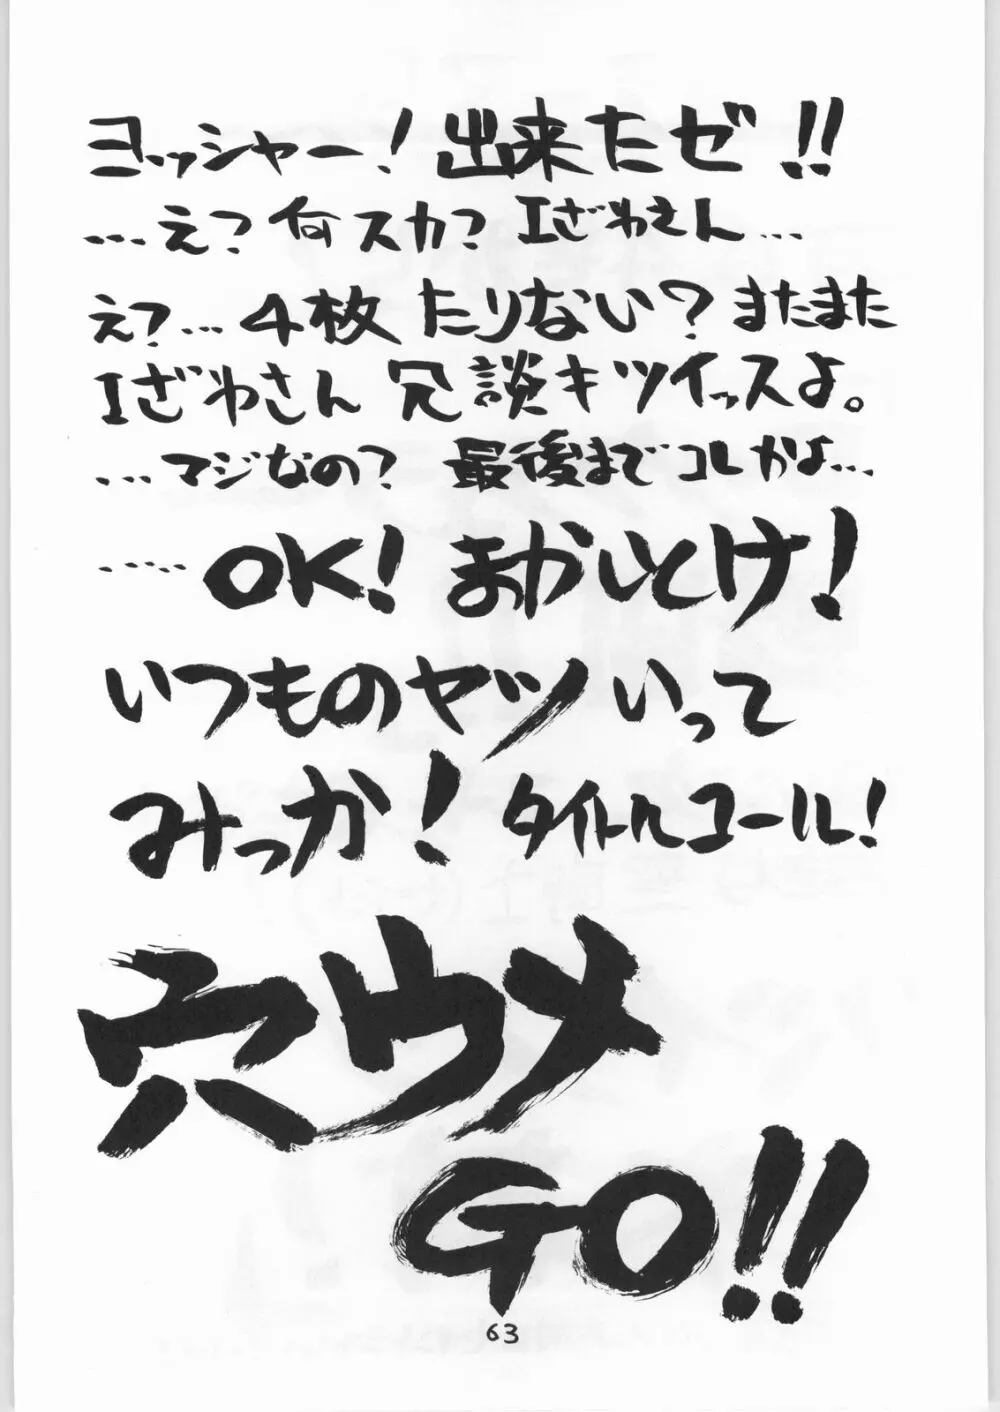 ヨッシャー！出来たゼ!!
…え？何スカ？Iざわさん…
え？…４枚たりない？またまた
Iざわさん 冗談キツイッスよ。
…マジなの？ 最後までコレかよ…
……OK！まかしとけ！
いつものヤツいって
みっか！タイトルコール！
穴ウメ
GO!!
63